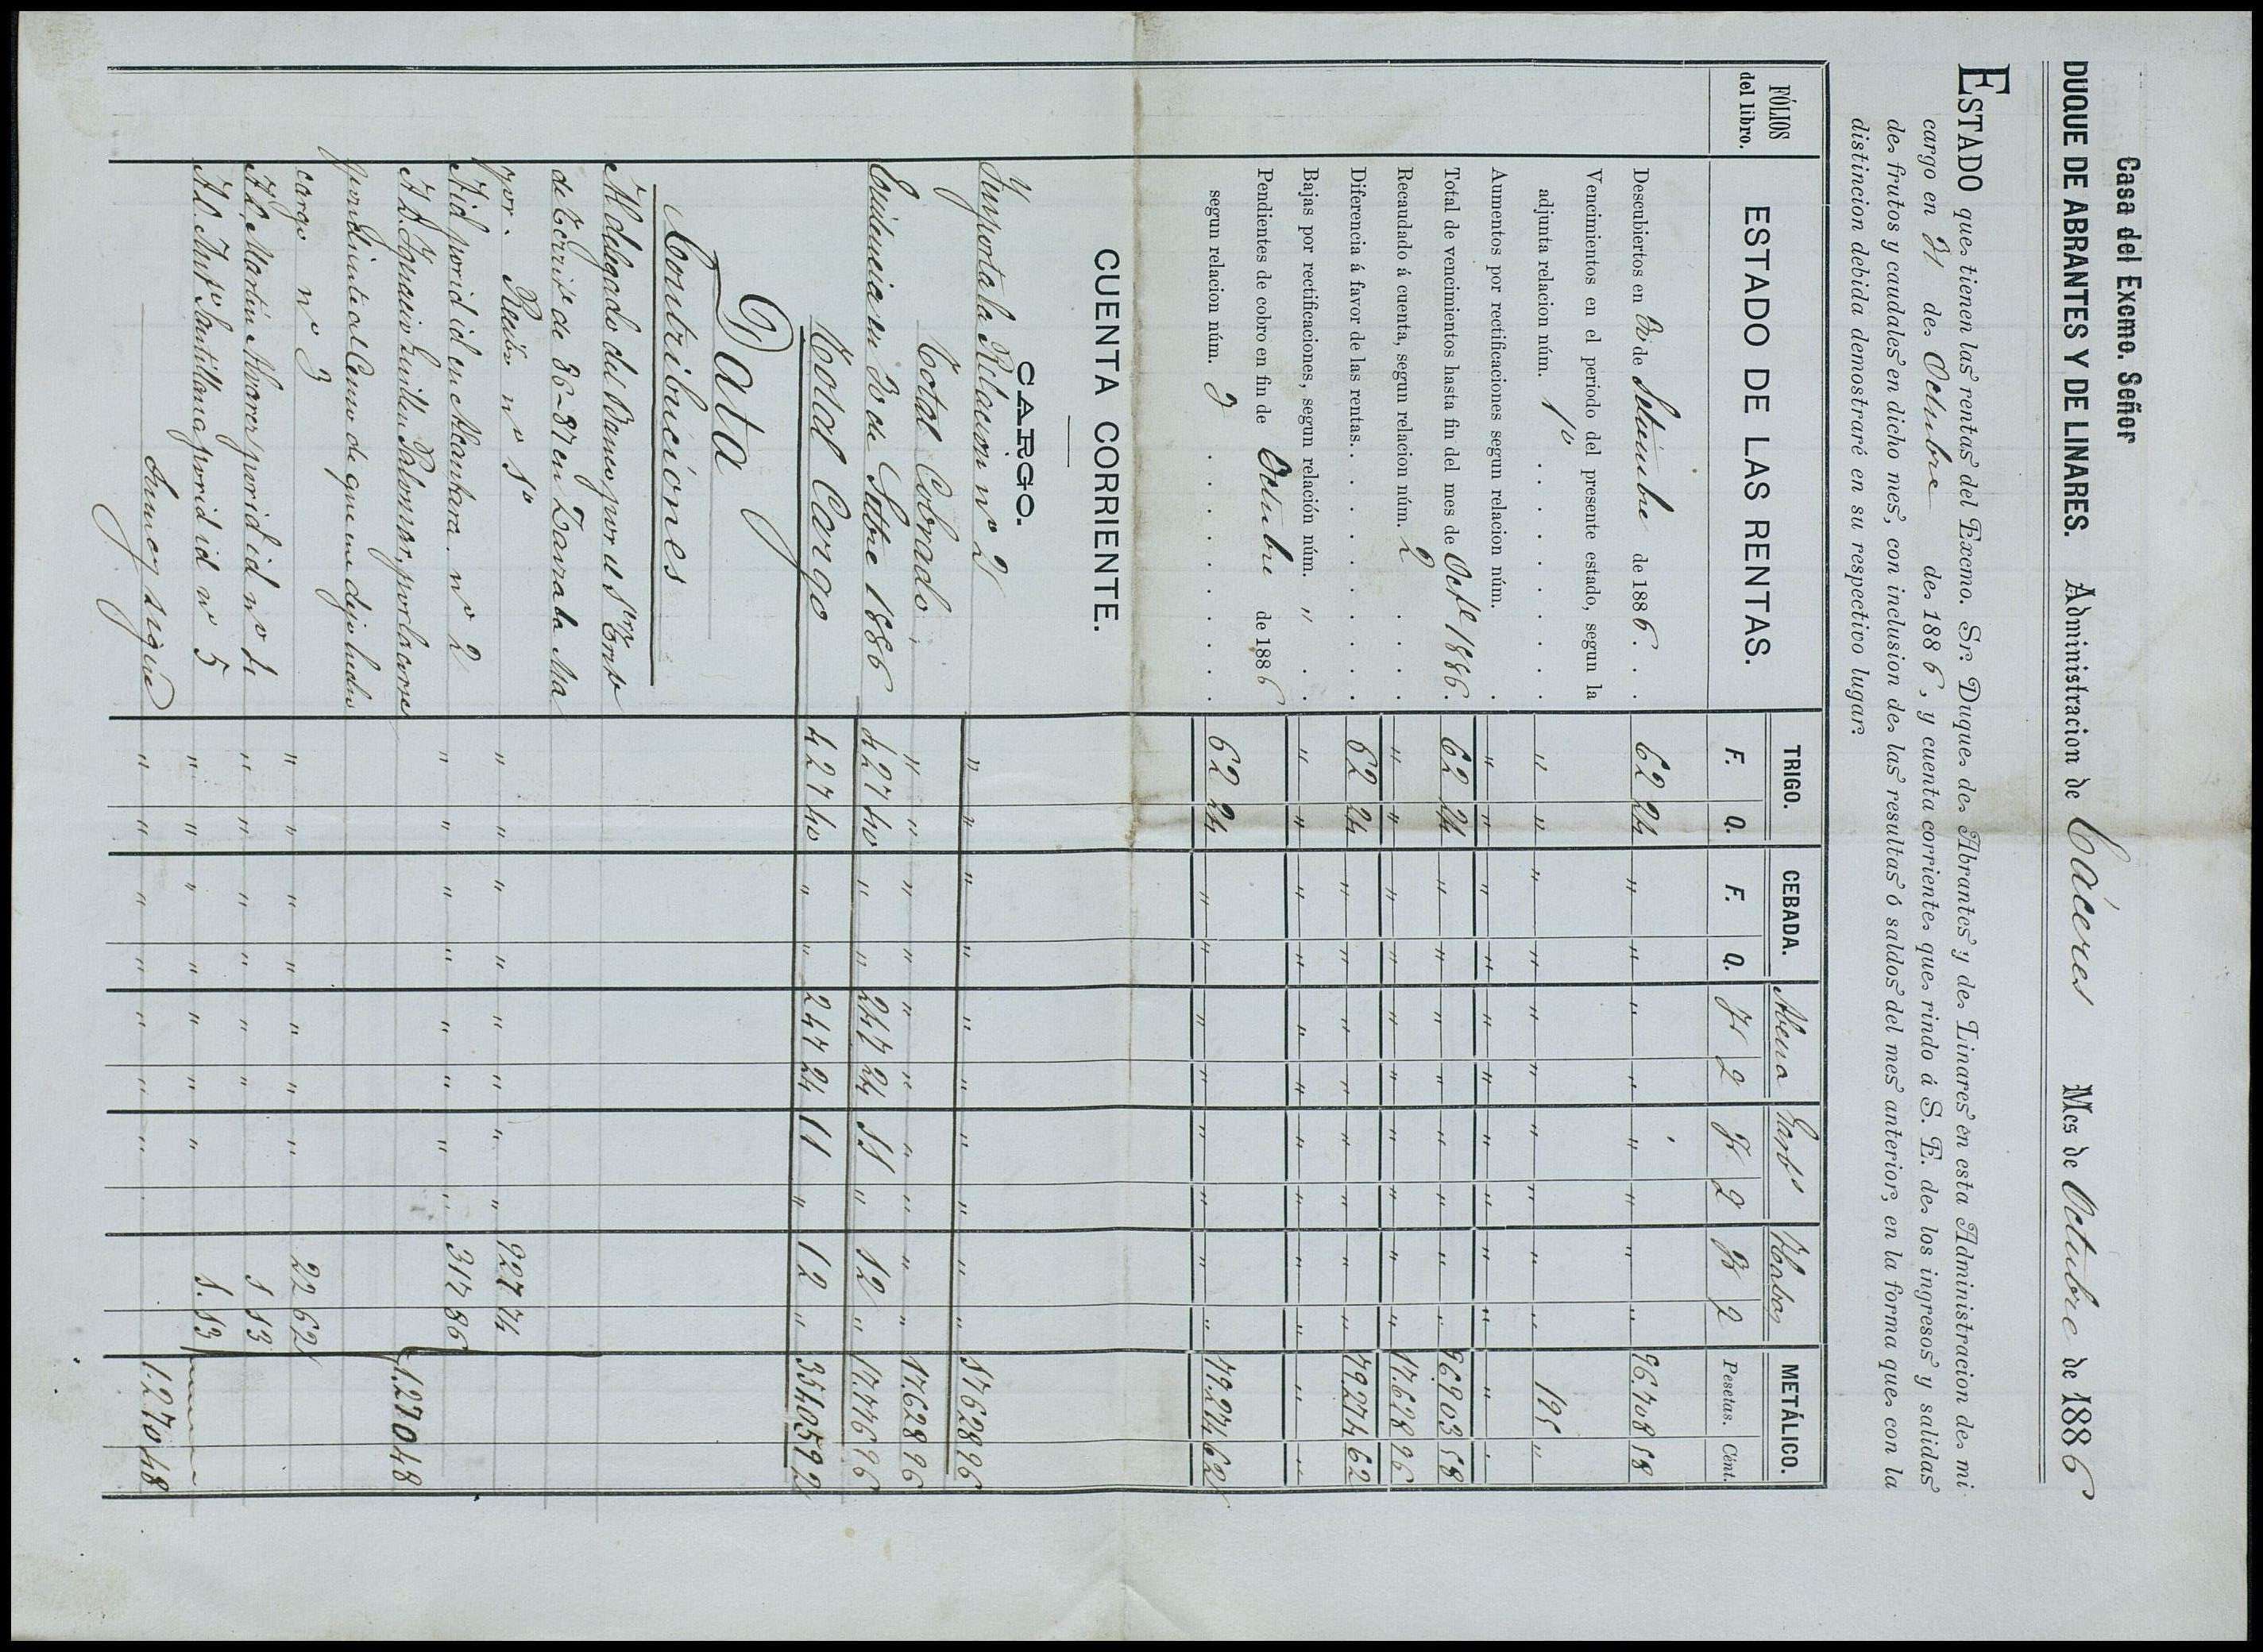 Casa del Excmo. Señor
DUQUE DE ABRANTES Y DE LINARES. Administracion de Cáceres Mes de Octubre de 1886
ESTADO que tienen las rentas del Excmo. Sr. Duque de Abrantes y de Linares en esta Administracion de mi
cargo en 31 de Octubre de 1886, y cuenta corriente que rindo á S. E. de los ingresos y salidas
de frutos y caudales en dicho mes, con inclusion de las resultas ó saldos del mes anterior, en la forma que con la
distincion debida demostraré en su respectivo lugar.
FÓLIOS del libro. ESTADO DE LAS RENTAS. TRIGO. CEBADA. Abena Garbs Habas METÁLICO.
F. Q. F. Q. F Q F Q F Q Pesetas. Cént.
Descubiertos en 30 de Setiembre de 1886. . . 62 24 " " " " " " " " 96.708 58
Vencimientos en el periodo del presente estado, segun la
adjunta relacion núm. 1º . . . . . . " " " " " " " " " " 195 "
Aumentos por rectificaciones segun relacion núm. . " " " " " " " " " " " "
Total de vencimientos hasta fin del mes de Octe 1886. 62 24 " " " " " " " " 96.903 58
Recaudado á cuenta, segun relacion núm. 2 . . . " " " " " " " " " " 17.628 96
Diferencia á favor de las rentas. . . . . . . 62 24 " " " " " " " " 79.274 62
Bajas por rectificaciones, segun relación núm. " . . " " " " " " " " " " " "
Pendientes de cobro en fin de Octubre de 1886
segun relacion núm. 3 . . . . . . . 62 24 " " " " " " " " 79.274 62
CUENTA CORRIENTE.
CARGO.
Importa la Relacion nº 2 " " " " " " " " " " 17628 96
Total Cobrado " " " " " " " " " " 17.628 96
Existencia en 30 de Setbre 1886 427 40 " " 247 24 11 " 12 " 17.776 96
Total Cargo 427 40 " " 247 24 11 " 12 " 35405 92
Data
Contribuciones
Al delegado del Banco por el 1er Trimtre
de Territl de 86-87 en Zarza la Ma
yor. Recibo nº 1º " " " " " " " " 927 74
Al id por id id en Alcantara. nº 2 " " " " " " " " 317 86
A D. Ignacio Guillen Palomar, por la corres 1.270 48
pondiente al Censo de que me dijo hacer
cargo nº 3 " " " " " " " 22 62
A D. Martin Alvarez por id id nº 4 " " " " " " 1 13
A D. Antº Santillana por id id nº 5 " " " " " " " 1.13
Suma y sigue " " " " " " " 1.270 48